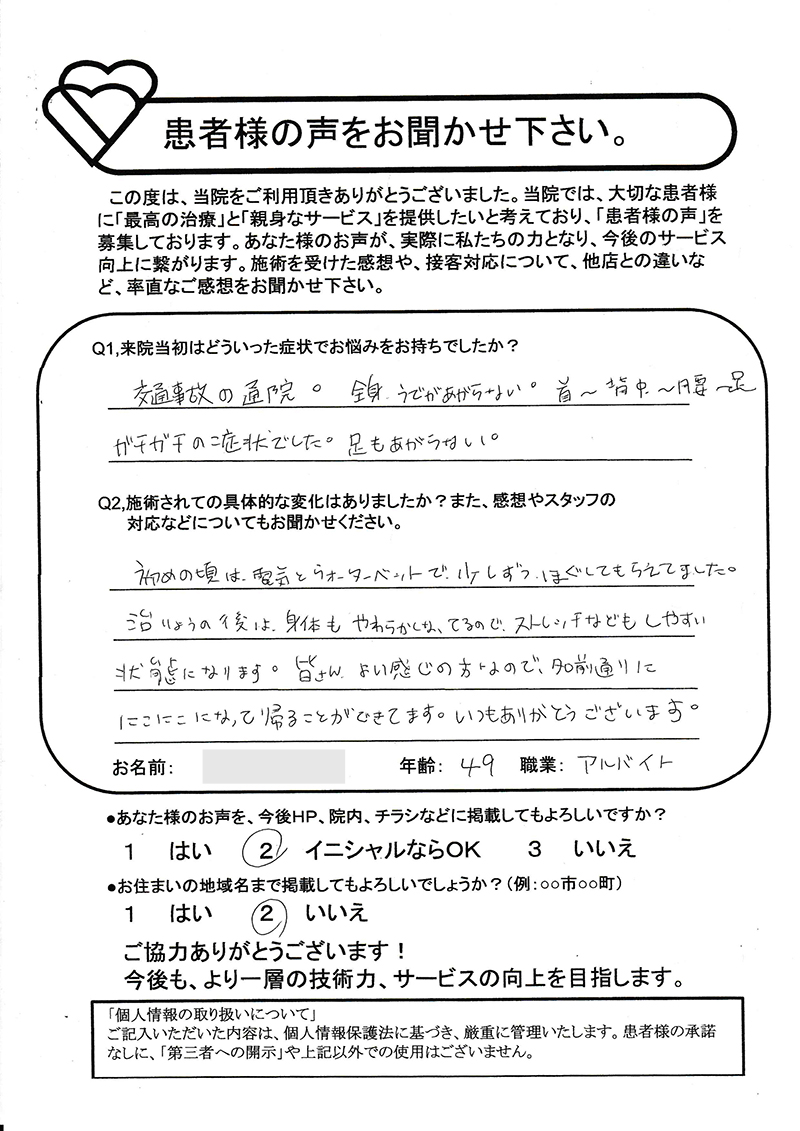 患者様の声をお聞かせ下さい。
この度は、当院をご利用頂きありがとうございました。当院では、大切な患者様
に「最高の治療」と「親身なサービス」を提供したいと考えており、「患者様の声」を
募集しております。あなた様のお声が、実際に私たちの力となり、今後のサービス
向上に繋がります。施術を受けた感想や、接客対応について、他店との違いな
ど、率直なご感想をお聞かせ下さい。
Q1,来院当初はどういった症状でお悩みをお持ちでしたか？
交通事故の通院。全身、うでがあがらない。首～背中～腰～足
ガチガチの症状でした。足もあがらない。
Q2,施術されての具体的な変化はありましたか？また、感想やスタッフの
対応などについてもお聞かせください。
初めの頃は、電気とウォーターベットで、少しずつ、ほぐしてもらえてました。
治りょうの後は、身体もやわらかくなってるので、ストレッチなどもしやすい
状態になります。皆さん、よい感じの方々なので、名前通りに
にこにこになって帰ることができてます。いつもありがとうございます。
お名前：
年齢：49 職業：アルバイト
●あなた様のお声を、今後HP、院内、チラシなどに掲載してもよろしいですか？
1 はい 2 イニシャルならOK 3 いいえ
●お住まいの地域名まで掲載してもよろしいでしょうか？（例：○○市○○町）
1 はい 2 いいえ
ご協力ありがとうございます！
今後も、より一層の技術力、サービスの向上を目指します。
「個人情報の取り扱いについて」
ご記入いただいた内容は、個人情報保護法に基づき、厳重に管理いたします。患者様の承諾
なしに、「第三者への開示」や上記以外での使用はございません。